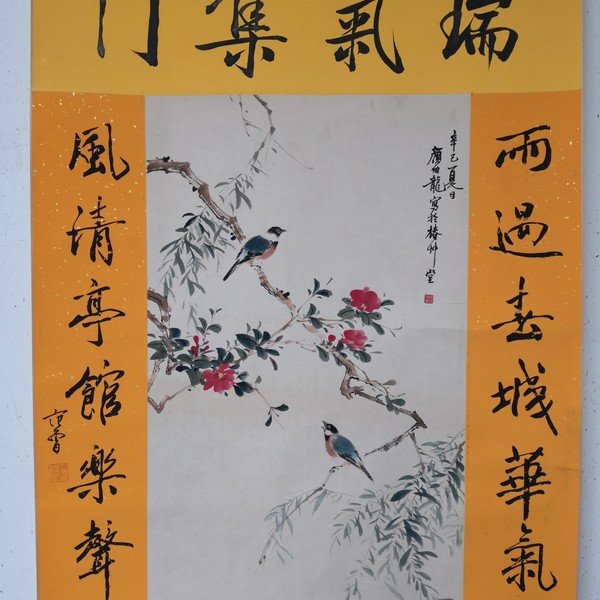 瑞氣集门
雨過春城華氣
辛巳夏日
顏伯龍寫於椿艸堂
風清亭館樂聲
范曾